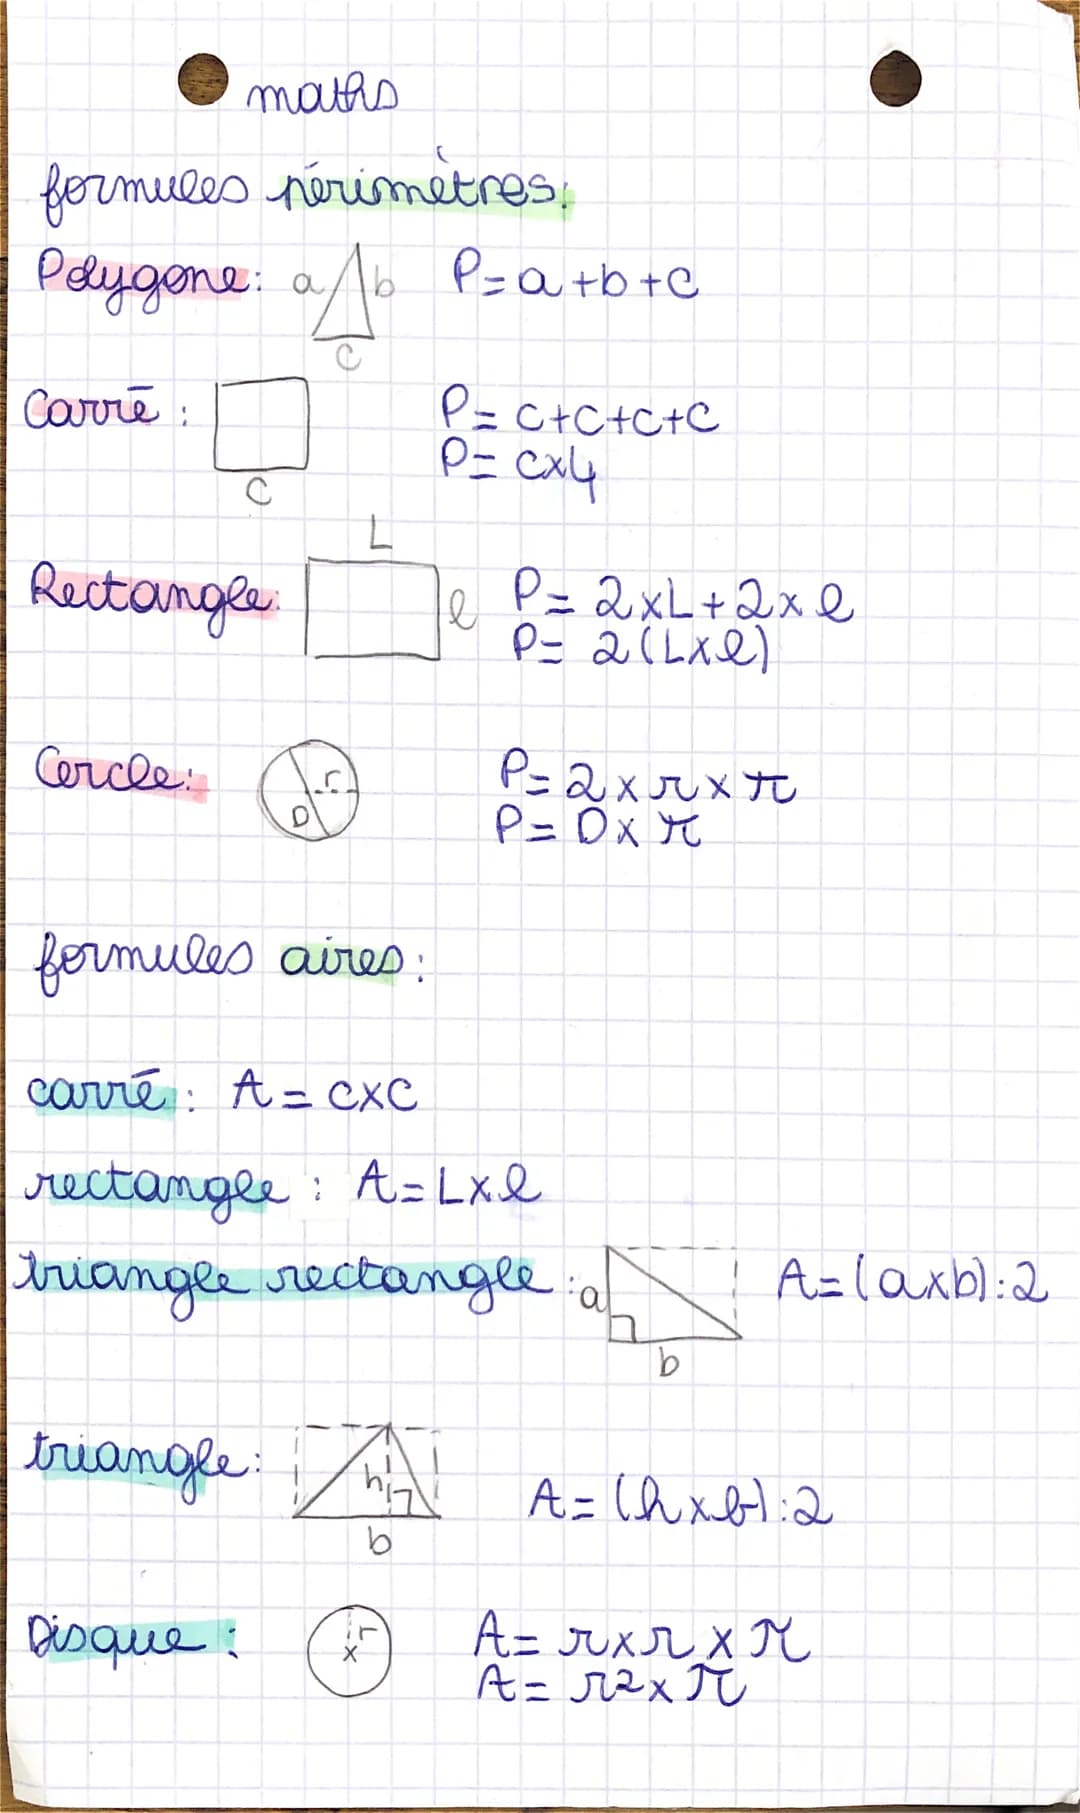 maths
formules périmètres:
Polygone: a b P=a+b+c
c
Carré : P= c+c+c+c
P= cx4
c
L
Rectangle: l P= 2xL+2xl
P= 2(Lxl)
Cercle: r D P= 2xrxπ
P= Dxπ
formules aires:
carré : A = cxc
rectangle : A=Lxl
triangle rectangle : a A=(axb):2
b
triangle: h A= (hxb):2
b
Disque : r x A= rxrxπ
A= r2xπ